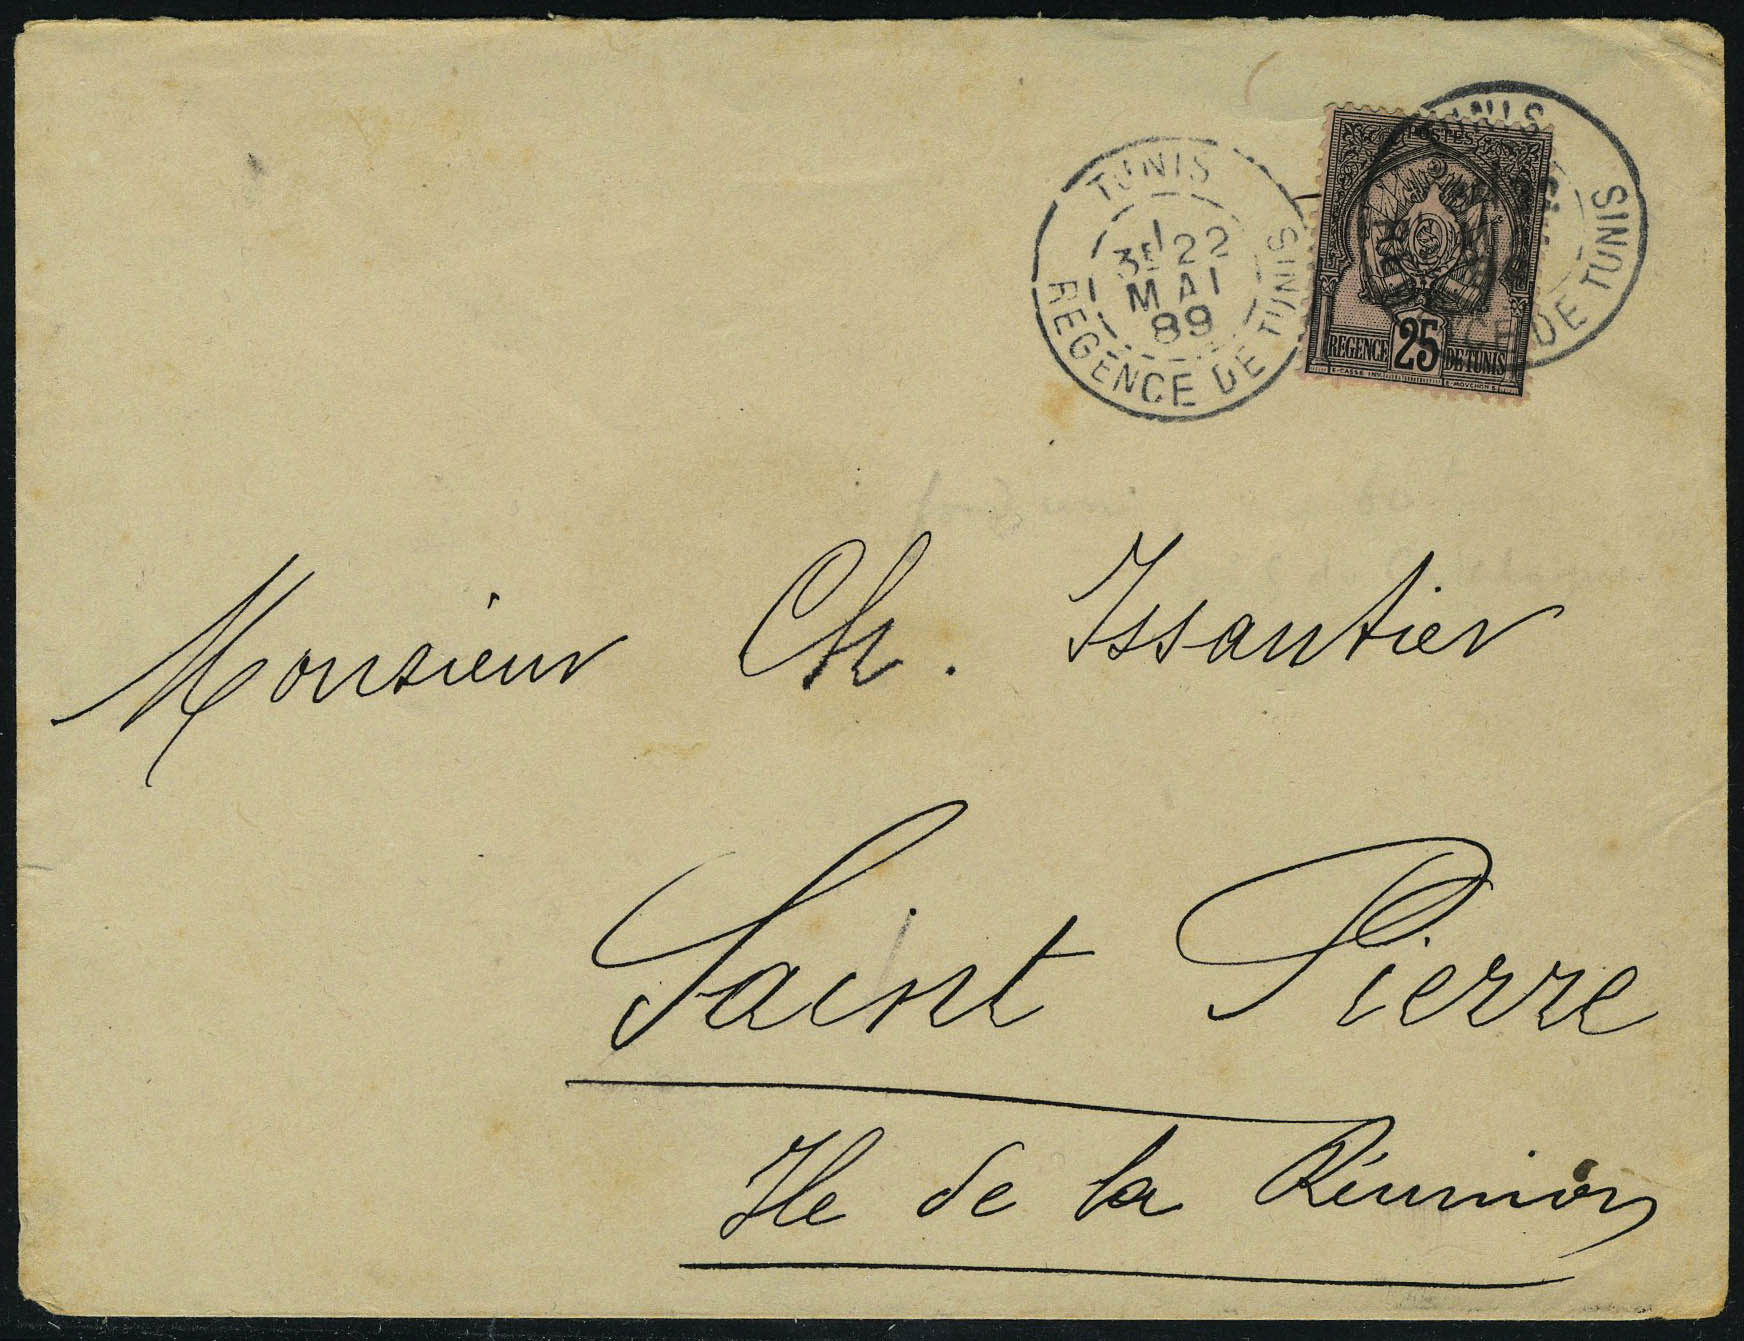 TUNIS
1
3E 22
MAI
89
REGENCE DE TUNIS
POSTES
REGENCE 25 DE TUNIS
E·CASSE INV. E·MOUCHON S.
DE TUNIS
Monsieur Ch. Issautier
Saint Pierre
Ile de la Réunion